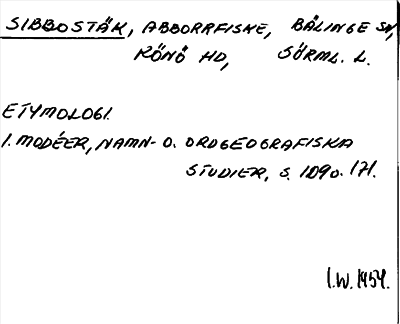 SIBBOSTÄK, ABBORRFISKE, BÅLINGE SN,
RÖNÖ HD, SÖRML. L.
ETYMOLOGI.
I. MODÉER, NAMN- O. ORDGEOGRAFISKA
STUDIER, S. 109 o. 171.
I.W. 1954.